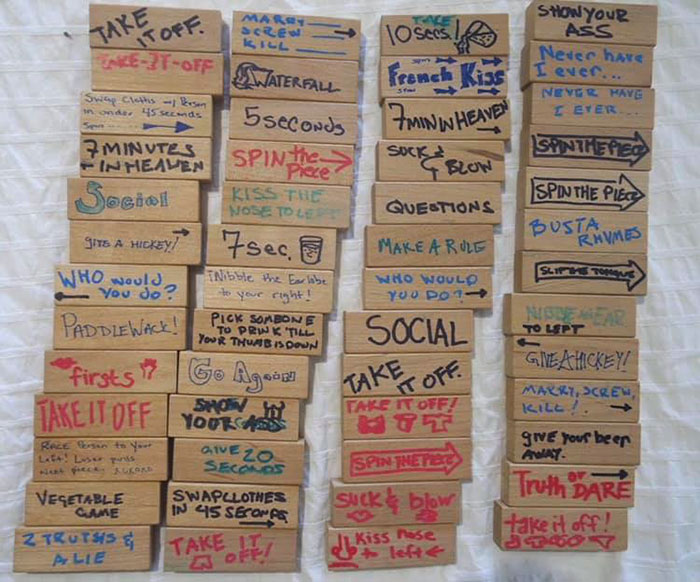 TAKE
IT OFF.
TAKE-IT-OFF
Swap Cloths w/ Person
in under 45 seconds
Spin
7 MINUTES
IN HEAVEN
Social
give A HICKEY!
WHO would
You do?
PADDLEWACK!
firsts
TAKE IT OFF
RACE Person to Your
Left! Loser pulls
Next piece.
VEGETABLE
GAME
2 TRUTHS &
A LIE
MARRY
SCREW
KILL
WATERFALL
5 seconds
SPIN the
Piece
KISS THE
NOSE TO LEFT
7 sec.
Nibble the Earlobe
to your right!
PICK SOMEONE
TO DRINK 'TILL
YOUR THUMB IS DOWN
Go Again
SHOW
YOUR ASS
GIVE 20
SECONDS
SWAP CLOTHES
IN 45 SECONDS
TAKE IT
OFF!
TAKE
10 secs!
French Kiss
7 MIN IN HEAVEN
SUCK
& BLOW
QUESTIONS
MAKE A RULE
WHO WOULD
YOU DO?
SOCIAL
TAKE
IT OFF.
TAKE IT OFF!
SPIN THE PIECE
SUCK & blow
Kiss nose
to left
SHOW YOUR
ASS
Never have
I ever...
NEVER HAVE
I EVER...
SPIN THE PIECE
SPIN THE PIECE
BUSTA
RHYMES
SLIP THE TONGUE
NIBBLE EAR
TO LEFT
GIVE A HICKEY!
MARRY, SCREW,
KILL!
give your beer
AWAY.
Truth or DARE
take it off!